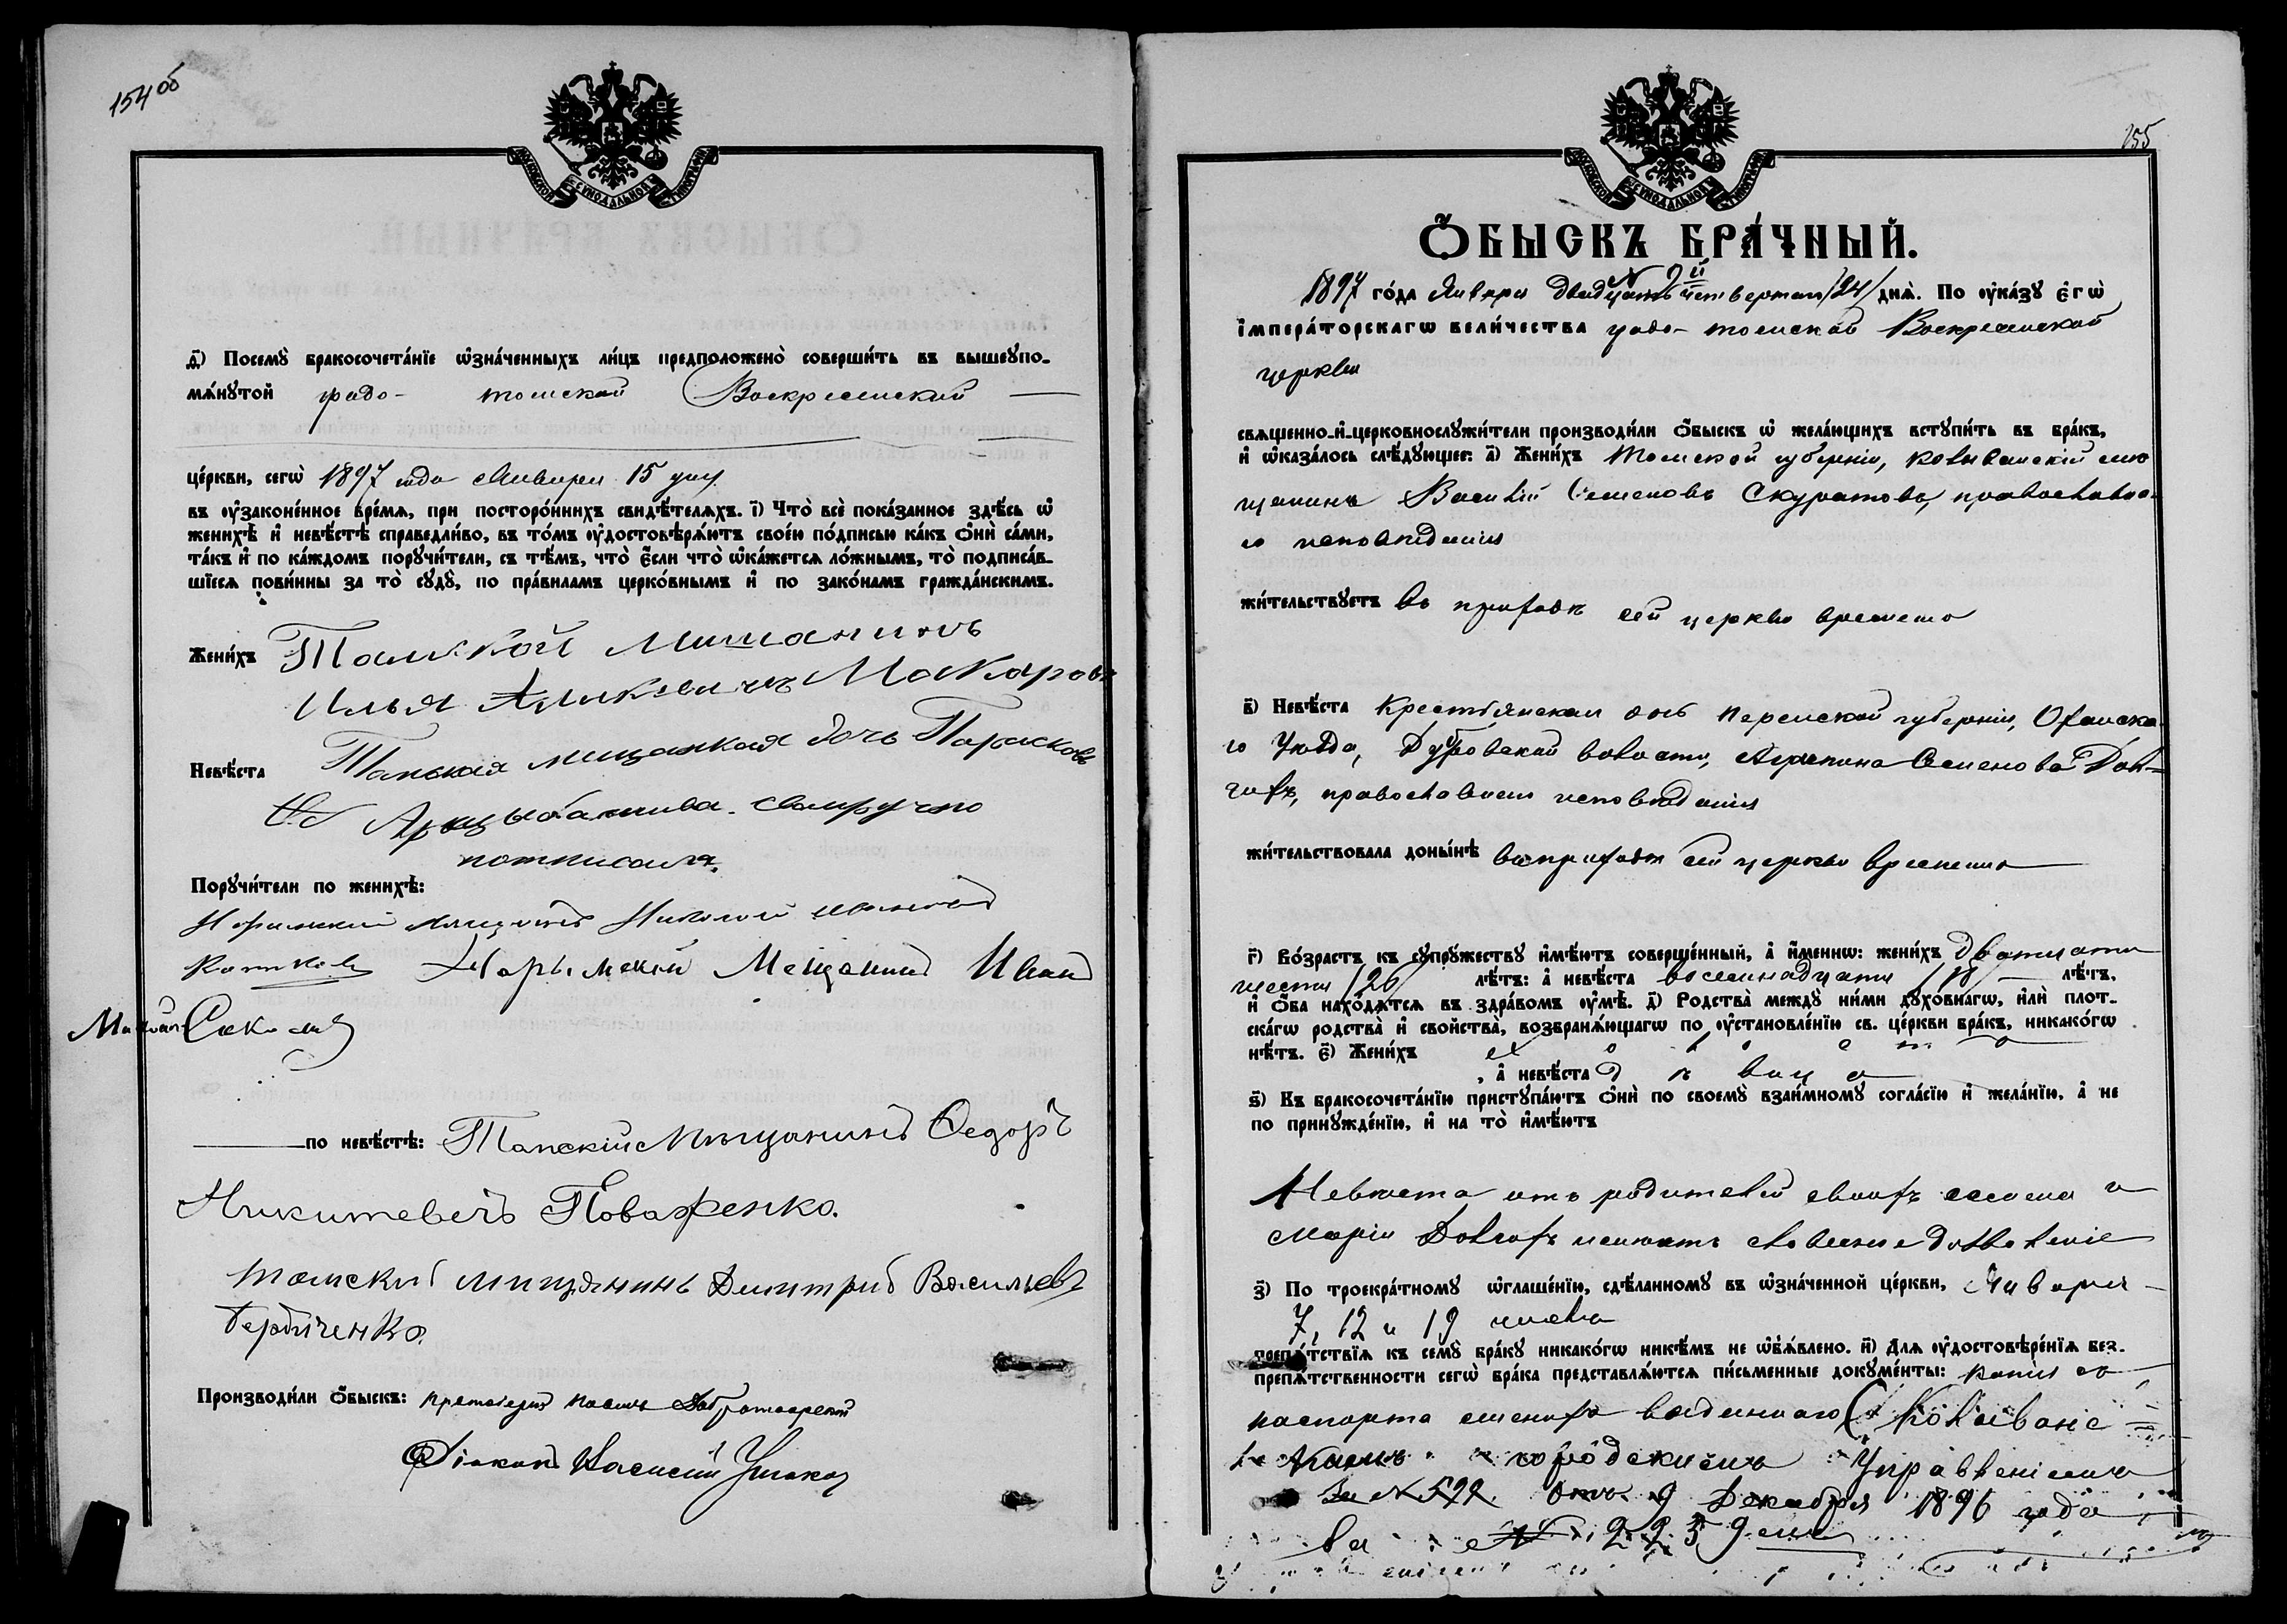 154 об
МОСКОВСКОЙ СѴНОДАЛЬНОЙ ТИПОГРАФІИ
д҃) Посемꙋ̀ бракосочета́нїе ѡ҆зна́ченныхъ ли́цъ предположено̀ соверши́ть въ вышеꙋпо-
мѧ́нꙋтой градо- томской Воскресенской
це́ркви, сегѡ̀ 1897 года Января 15 дня
въ ᲂу҆зако́ненное вре́мѧ, при посторо́ннихъ свидѣ́телѧхъ. і҃) Что̀ всѐ пока́занное здѣ́сь ѡ҆
женихѣ̀ и҆ невѣ́стѣ справедли́во, въ то́мъ ᲂу҆достовѣрѧ́ютъ свое́ю по́дписью ка́къ ѻ҆нѝ са́ми,
та́къ и҆ по ка́ждомъ порꙋчи́тели, съ тѣ́мъ, что̀ є҆́сли что̀ ѡ҆ка́жетсѧ ло́жнымъ, то̀ подписа́в-
шїесѧ пови́нны за то̀ сꙋдꙋ̀, по пра́виламъ церко́внымъ и҆ по зако́намъ гражда́нскимъ.
Жени́хъ Томской Мишанинъ
Илья Аликсеичъ Макаровъ
Невѣ́ста Томская мищанская дочь Парасковья
Арцыбашива. Самручно
потписала.
Порꙋчи́тели по женихѣ̀:
Нарымский мещанинъ Николай
Нарымский Мещанинъ Иванъ
Соколов
по невѣ́стѣ: Томский Мещанинъ Ѳедоръ
Никитевечъ Поваренко.
томский мищянинъ Димитрий Васильевъ
Бердиченко.
Производи́ли ѻ҆́быскъ: протоіерей Доброт
Діаконъ Василій Ушаков
155
МОСКОВСКОЙ СѴНОДАЛЬНОЙ ТИПОГРАФІИ
Ѻ҆́БЫСКЪ БРА́ЧНЫЙ.
№ 9й
1897 го́да Января двадцать четвертаго /24/ днѧ̀. По ᲂу҆ка́зꙋ є҆гѡ̀
і҆мпера́торскагѡ вели́чества градо-томской Воскресенской
церкви
свѧще́нно-и҆-церковнослꙋжи́тели производи́ли ѻ҆́быскъ ѡ҆ жела́ющихъ встꙋпи́ть въ бра́къ,
и҆ ѡ҆каза́лось слѣ́дꙋющее: а҃) Жени́хъ Томской губерніи, Колыванскій мѣ
щанинъ Василій Семеновъ Скуратовъ, православна-
го исповѣданія
жи́тельствꙋетъ въ приходѣ сей церкви временно
в҃) Невѣ́ста Крестьянская дочь Пермской губерніи, Оханска-
го уѣзда, Дубровской волости, Агрипина Семенова Дол-
гихъ, православнаго исповѣданія
жи́тельствовала доны́нѣ въ приходѣ сей церкви временно
г҃) Во́зрастъ къ сꙋпрꙋ́жествꙋ и҆мѣ́ютъ соверше́нный, а҆ и҆́меннѡ: жени́хъ двадцати
шести /26/ лѣ́тъ: а҆ невѣ́ста восемнадцати /18/ лѣ́тъ,
и҆ ѻ҆́ба нахо́дѧтсѧ въ здра́вомъ ᲂу҆мѣ̀. д҃) Родства̀ междꙋ̀ ни́ми дꙋхо́внагѡ, и҆лѝ плот-
ска́гѡ родства̀ и҆ свойства̀, возбранѧ́ющагѡ по ᲂу҆становле́нїю св. це́ркви бра́къ, никако́гѡ
нѣ́тъ. є҃) Жени́хъ холостъ
, а҆ невѣ́ста дѣвица
ѕ҃) Къ бракосочета́нїю пристꙋпа́ютъ ѻ҆нѝ по своемꙋ̀ взаи́мномꙋ согла́сїю и҆ жела́нїю, а҆ не
по принꙋжде́нїю, и҆ на то̀ и҆мѣ́ютъ
Невѣста отъ родителей своихъ Семена и
Маріи Долгихъ имѣютъ словесное дозволеніе
з҃) По троекра́тномꙋ ѡ҆глаше́нїю, сдѣ́ланномꙋ въ ѡ҆зна́ченной це́ркви, Января
7, 12 и 19 числа
препѧ́тствїѧ къ семꙋ̀ бра́кꙋ никако́гѡ никѣ́мъ не ѡ҆б̾ѧ́влено. и҃) Для ᲂу҆достовѣре́нїѧ без-
препѧ́тственности сегѡ̀ бра́ка представлѧ́ютсѧ пи́сьменные докꙋме́нты: копія съ
паспорта жениха выданнаго Колыванс
кимъ городскимъ Управленіемъ
за № 522. отъ 9 Декабря 1896 года
за № 2259